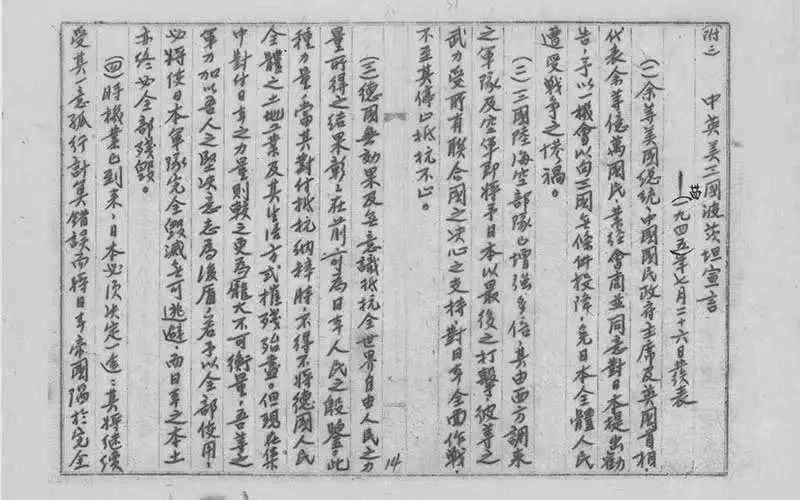 附三 中英美三國波茨坦宣言
(一九四五年七月二十六日發表)
(一)余等美國總統,中國國民政府主席及英國首相,
代表余等億萬國民,業經會商並同意對日本提出勸
告,予以一機會以向三國無條件投降,免日本全體人民
遭受戰爭之慘禍。
(二)三國陸海空部隊已增強多倍,其由西方調來
之軍隊及空軍即將予日本以最後之打擊,彼等之
武力受所有聯合國之決心之支持對日本全面作戰,
不至其停止抵抗不止。
(三)德國無効果及無意識抵抗全世界自由人民之力
量所得之結果彰彰在前可為日本人民之殷鑒。此
種力量,當其對付抵抗納粹時,不得不將德國人民
全體之土地工業及其生活方式摧殘殆盡。但現在集
中對付日本之力量則較之更為龐大不可衡量,吾等之
軍力加以吾人之堅決意志為後盾,若予以全部使用,
必將使日本軍隊完全毀滅無可逃避,而日本之本土
亦終必全部殘毀。
(四)時機業已到來,日本必須決定一途:其將繼續
受其一意孤行計算錯誤而將日本帝國陷於完全
14